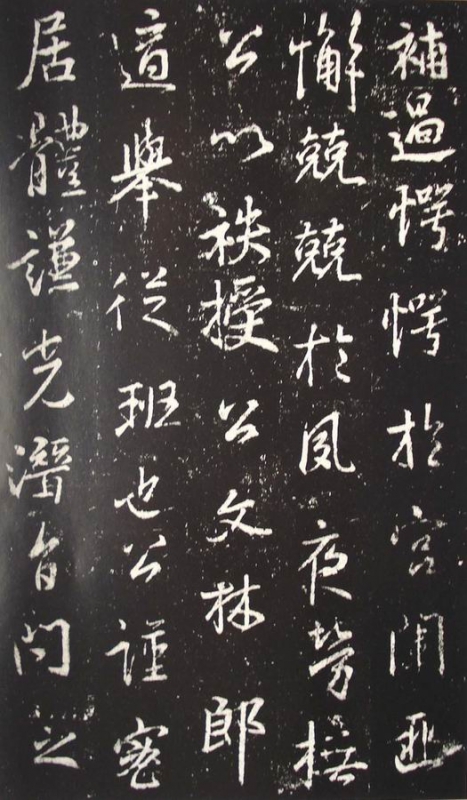 補過愕愕於宮闈匪
懈兢兢於夙夜勞撫
公以秩授公文林郎
適舉從班也公謹密
居體謙光潛旨問之